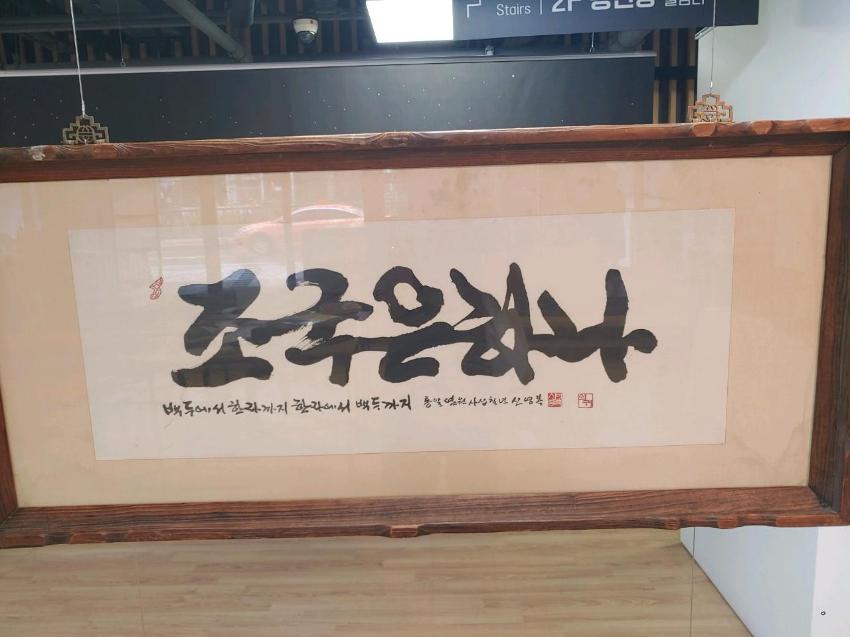 Stairs
2F
조국은하나
백두에서 한라까지 한라에서 백두까지 통일염원사십칠년 신영복